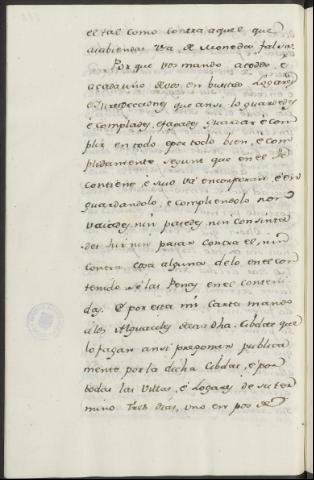 el tal como contra aquel que
asabiendas usa de Moneda falsa.
Porque vos mando a todos e
a cada uno de vos en buestros Logares
e Jurisdicciones que ansi lo guardedes
e complades, e fagades guardar e com
plir en todo, e por todo bien, e com
plidamente, segunt que en el se
contiene, e suso va encorporado, e en
guardandolo, e compliendolo non
vaiades, nin pasedes, nin consinta
des hir nin pasar contra el, nin
contra cosa alguna de lo en el con
tenido so las Penas en el conteni
das. E por esta mi Carta mando
a los Alguaciles de la dha. Cibdat que
lo fagan ansi pregonar publica
mente por la dicha Cibdat, e por
todas las Villas, e Logares de su ter
mino Tres dias, uno en pos de